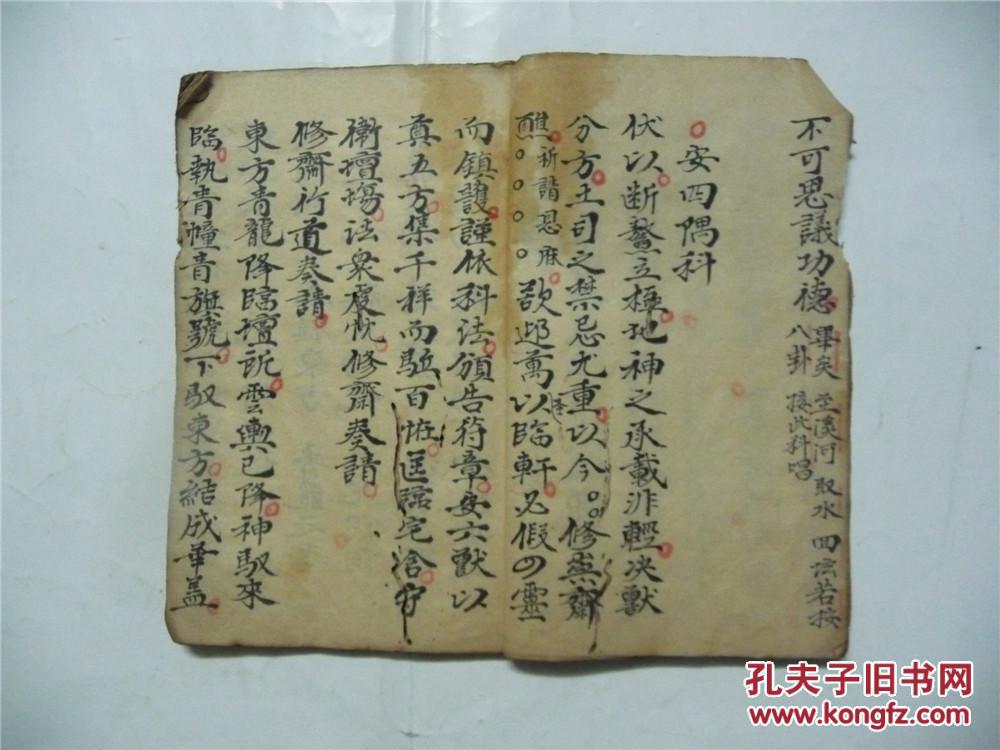 不可思議功德 畢矣 至溪河取水 回 若按
八卦 接此科唱
安四隅科
伏以断鰲立極地神之承載非輕决獸
分方土司之禁忌尤重以今 修 齋
醮 祈請恩庥 欲迎萬 以臨軒必假四靈
而鎮護謹依科法頒告符章安六獸以
真五方集千祥而駈百恠匡臨宅舍守
衛壇塲法衆虔忱修齋奏請
修齋行道奏請
東方青龍降臨壇所雲輿已降神馭來
臨執青幢青旌號下馭東方結成華盖
孔夫子旧书网
www.kongfz.com